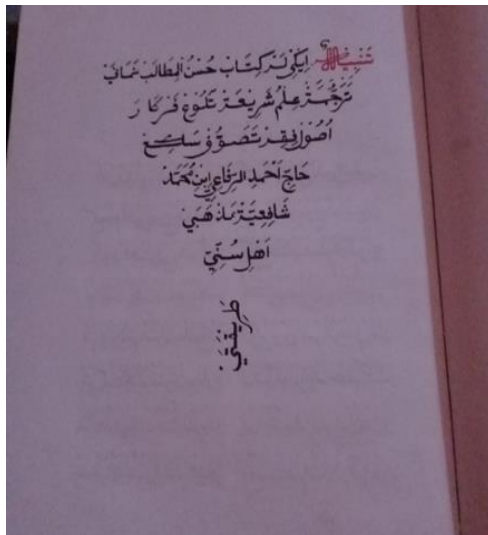 تَنْبِيْهٌ اِيكِيْ لَهْ كِتَابْ حُسْنُ الْمِطَالَبْ نَمَانَيْ
تَرْجَمَةْ عِلْمُ شَرِيْعَةْ تَلُوْڠْ فَرْكَارَ
اُصُوْلْ فِقِهْ تَصَوُّفْ سَكِڠْ
حَاجِ اَحْمَدِ الرِّفَاعِيْ اِبْنِ مُحَمَّدْ
شَافِعِيَّةْ مَذْهَبَيْ
اَهْلِ سُنِّيْ
طَرِيْقَتَيْ